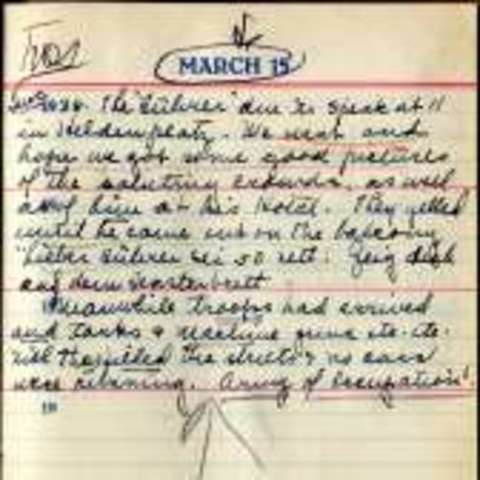 Tues
MARCH 15
The "Führer" due to speak at 11
in Heldenplatz. We went and
hope we got some good pictures
of the saluting crowds, as well
as of him at his Hotel. They yelled
until he came out on the balcony
"Lieber Führer sei so nett: Zeig dich
auf dem
Meanwhile troops had arrived
and tanks & machine guns etc. etc.
till they filled the streets & no cars
were running. Army of Occupation!
19